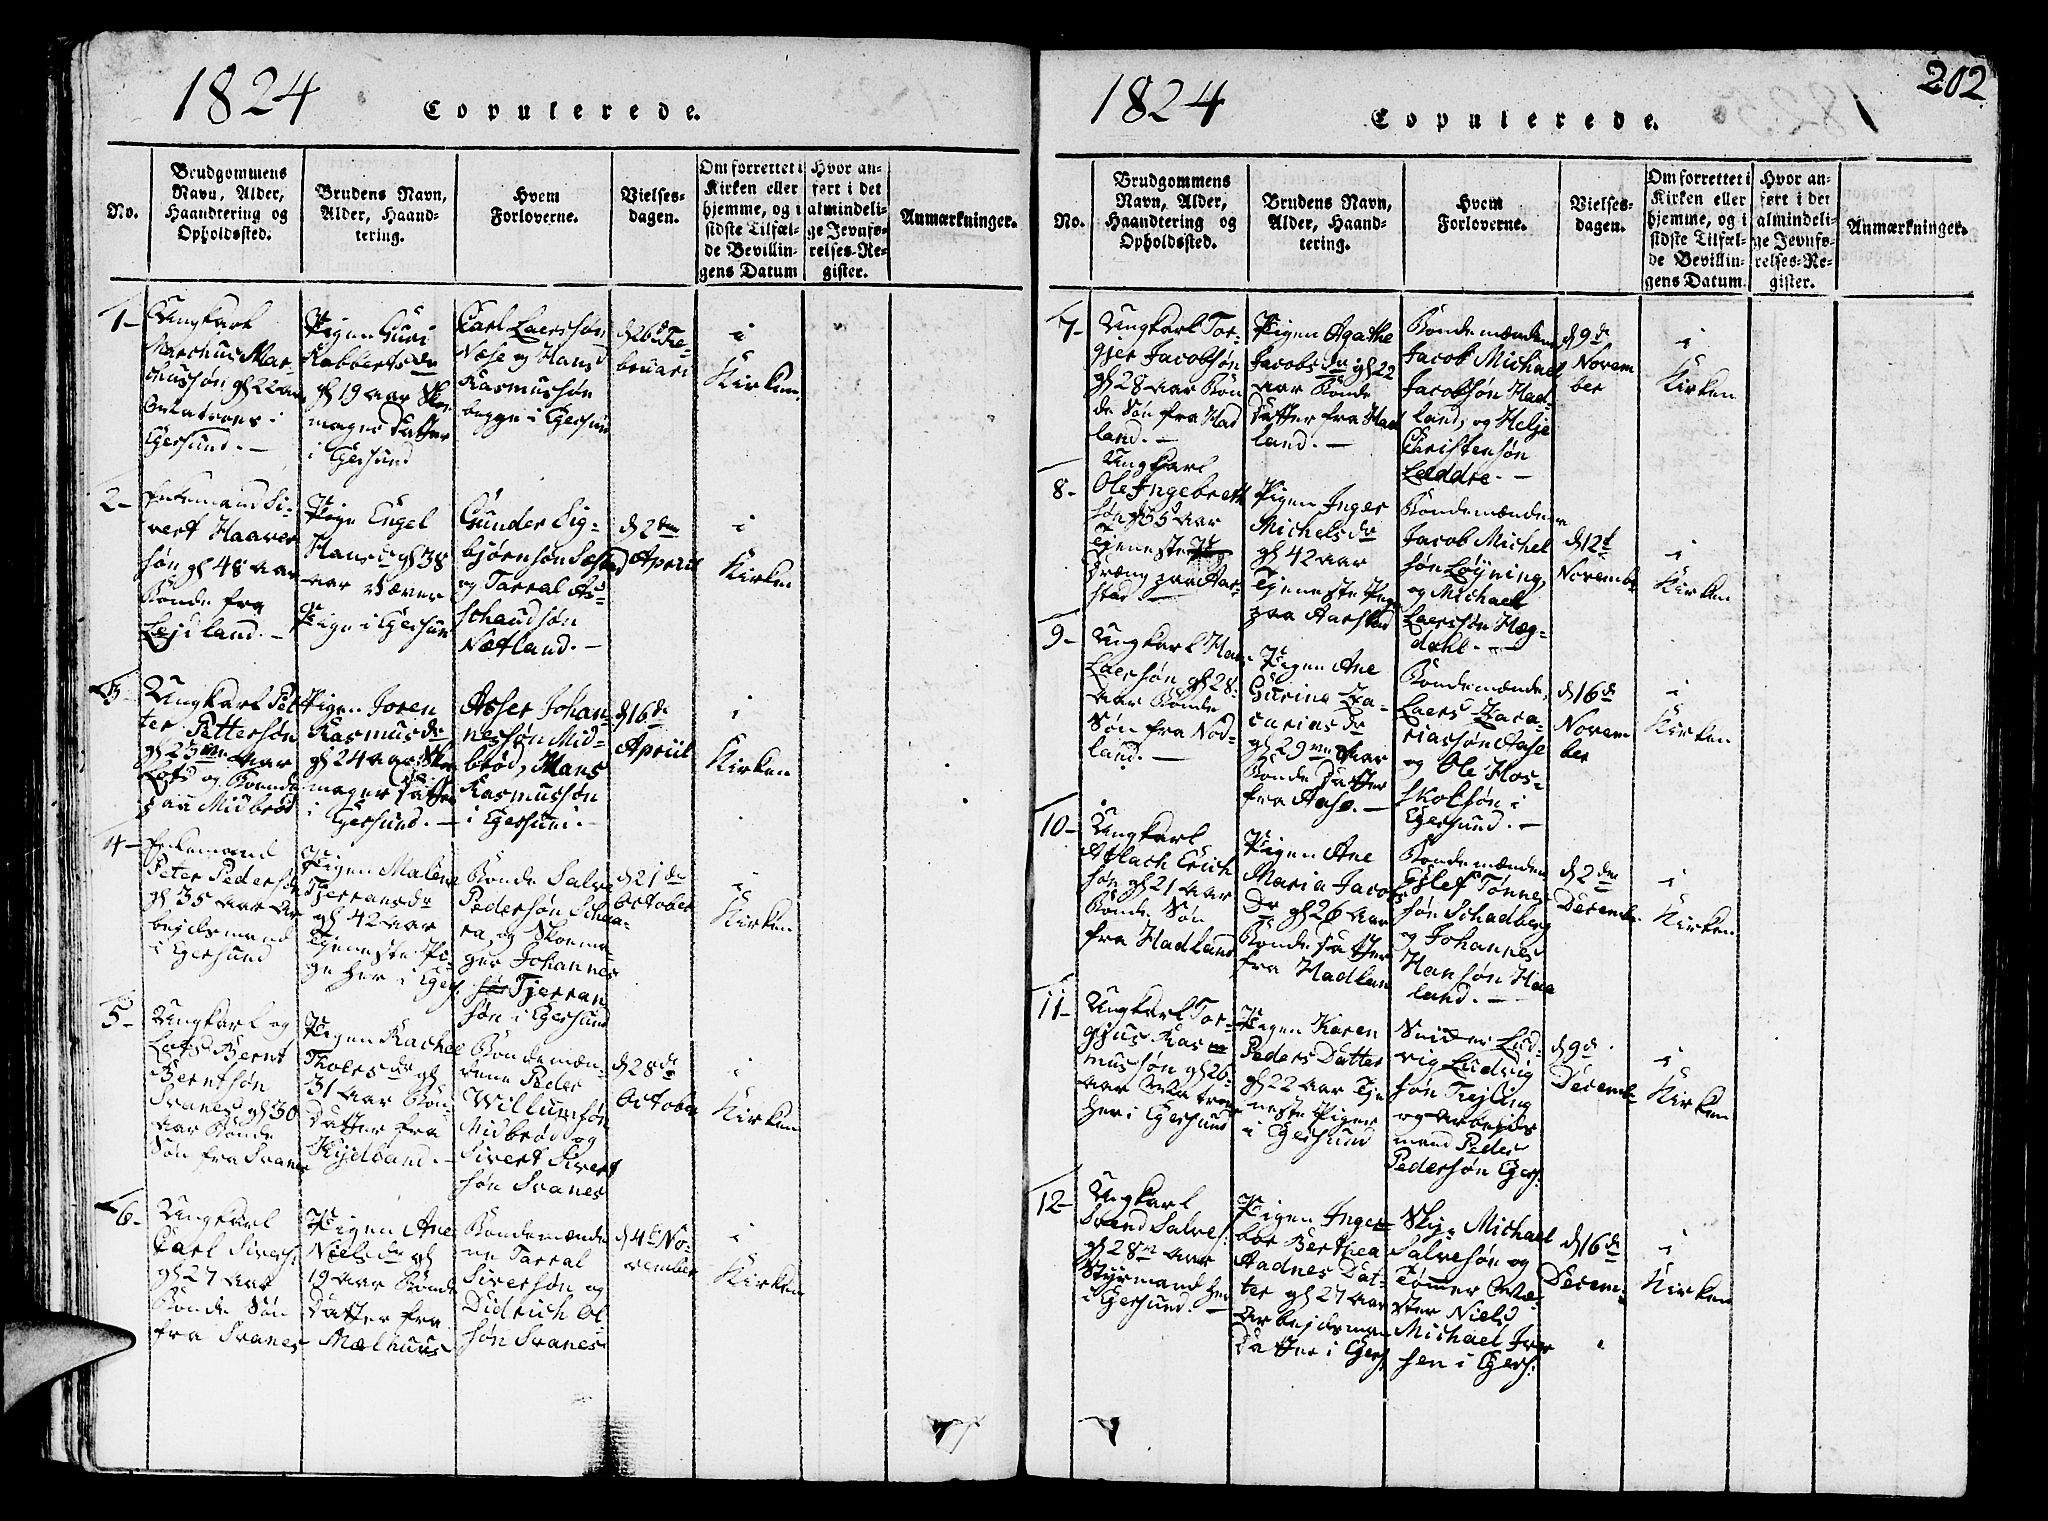 1824
Copulerede.
No.
Brudgommens
Navn, Alder,
Haandtering og
Opholdssted.
Brudens Navn,
Alder, Haand-
tering.
Hvem
Forloverne.
Vielses-
dagen.
Om forrettet i
Kirken eller
hjemme, og i
sidste Tilfæl-
de Bevillin-
gens Datum
Hvor an-
ført i det
almindeli-
ge Jevnfø-
relses-Re-
gister.
Anmærkninger.
1-
Ungkarl
Marchus Mar
chussøn gl 22 aar
i
Egersund. -
Pigen Guri
Rabbertsdr
gl 19 aar Sko
mager Datter
i Egersund
Carl Laersøn
Næse og Hans
Rasmussøn
begge i Egersun
d 26d Fe-
bruari
i
Kirken
2-
Enkemand Si-
vert Haaver
søn gl 48 aar
Bonde fra
Lejdland. -
Pige Engel
Hansdr gl 38
aar
Pige i Egersun
Gunder Sig-
bjørnsøn
og Tarral As-
Nætland. -
d 2den
April
i
Kirken
3-
Ungkarl Pet
ter Pettersøn
gl 23 aar
Lots og Bonde
paa Midbrød
Pigen Joren
Rasmusdr
gl 24 aar Sko
mager Datter
i Egersund. -
Asser Johan-
nessøn Mid-
brød, Hans
Rasmussøn
i Egersund. -
d 16de
April
i
Kirken
4-
Enkemand
Peter Peders
gl 35 aar Ar
bejdsmand
i Egersund
Pigen Malene
Tjerransdr
gl 42 aar
Tjeneste Pi-
ge her i Egers.
Bonde Salve
Pedersøn Schaa-
ra, og Skoma-
ger Johannes
Tjerran
søn i Egersund
d 21de
October
i
Kirken
5-
Ungkarl og
Lots Bernt
Berntsøn
Svanes gl 30
aar Bonde
Søn fra Svanes
Pigen Rachel
Tholesdr gl
31 aar Bon-
Datter fra
Kydland. -
Bondemæn-
dene Peder
Willumsøn
Midbrød og
Sivert Sivert
søn Svanes
d 28de
October
i
Kirken
6-
Ungkarl
Carl Sivers
gl 27 aar
Bonde Søn
fra Svanes
Pigen Ane
Nielsdr gl
19 aar Bonde
Datter fra
Mælhuus
Bondemænde
ne Tarral
Siversøn og
Didrich Ol
søn Svanes
d 4de No-
vember
i
Kirken
1824
Copulerede.
202
No.
Brudgommens
Navn, Alder,
Haandtering og
Opholdssted.
Brudens Navn,
Alder, Haand-
tering.
Hvem
Forloverne.
Vielses-
dagen.
Om forrettet i
Kirken eller
hjemme, og i
sidste Tilfæl-
de Bevillin-
gens Datum.
Hvor an-
ført i det
almindeli-
ge Jevnfø-
relses-Re-
gister.
Anmærkninger.
7-
Ungkarl Tor-
gjer Jacobsøn
gl 28 aar Bon
de Søn fra Had
land. -
Pigen Agathe
Jacobsdr gl 22
aar Bonde
Datter fra Had
land. -
Bondemændene
Jacob Michael
Jacobsøn Had-
land, og Helje
Christensøn
Læddre. -
d 9de
Novem
ber
i
Kirken
8-
Ungkarl
Ole Ingebreth
søn 35 aar
Tjeneste
Dræng paa Aar-
stad -
Pigen Inger
Michelsdr
gl 42 aar
Tjeneste Pige
paa Aarstad
Bondemændene
Jacob Michel
søn Løyning,
og Michael
Laersøn Hæg-
dahl. -
d 12te
November
i
Kirken
9-
Ungkarl Han
Laersøn gl 28
aar Bonde
Søn fra Nod-
land. -
Pigen Ane
Gurine Za-
cariasdr
gl 29 aar
Bonde Datter
fra Aase. -
Bondemænde,
Laers Zaca-
riassøn Aase
og Ole Hos-
skolsøn i
Egersund. -
d 16de
Novem
ber
i
Kirken
10-
Ungkarl
Aslach Erich
søn gl 21 aar
Bonde Søn
fra Hadland
Pigen Ane
Maria Jacobs
Dr gl 26 aar
Bonde Datter
fra Hadland
Bondemænden
Eilef Tønnes
søn Schadberg
og Johannes
Hansøn Haa
land. -
d 2den
Decemb.
i
Kirken
11-
Ungkarl Tor-
gjus Ras
mussøn gl 26
aar Matros
her i Egersund
Pigen Karen
Peders Datter
gl 22 aar Tje
neste Piger
i Egersund
Snider Lud-
vig Ludvig
søn Trejling
og Arbejds
mand Peder
Pedersøn Egers.
d 9de
Decemb.
i
Kirken
12-
Ungkarl
Svend Salves:
gl 28 aar
Styrmand her
i Egersund. -
Pigen Inge-
bor Berthea
Aadnes Dat-
ter gl 27 aar
Arbejdsman
Datter i Egers
Skip. Michael
Salvesøn og
Tømmer Me-
ster Niels
Michael Iver
sen i Egers:
d 16de
Decem:
i
Kirken